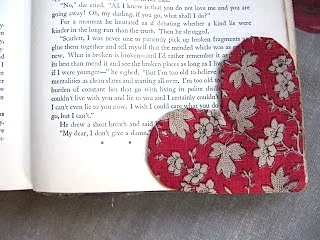 "No," she cried. "All I know is that you do not love me and you are
going away! Oh, my darling, if you go, what shall I do?"
For a moment he hesitated as if debating whether a kind lie were
kinder in the long run than the truth. Then he shrugged.
"Scarlett, I was never one to patiently pick up broken fragments
glue them together and tell myself that the mended whole was as
new. What is broken is broken—and I'd rather remember it
its best than mend it and see the broken places as long as I
if I were younger—" he sighed. "But I'm too old to believe
mentalities as clean slates and starting all over. I'm too old
burden of constant lies that go with living in polite
couldn't live with you and lie to you and I certainly couldn't
I can't even lie to you now. I wish I could care what you do
go, but I can't."
He drew a short breath and said
"My dear, I don't give a damn."